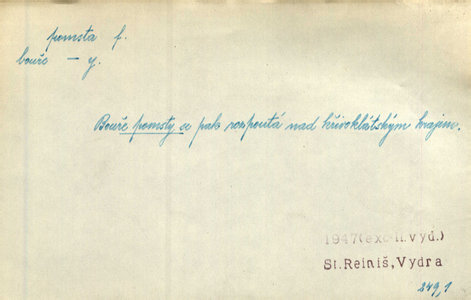 pomsta f.
bouře – y.
Bouře pomsty se pak rozpoutá nad křivoklátským krajem.
1947 (exc. II. vyd.)
St. Reiniš, Vydra
249,1